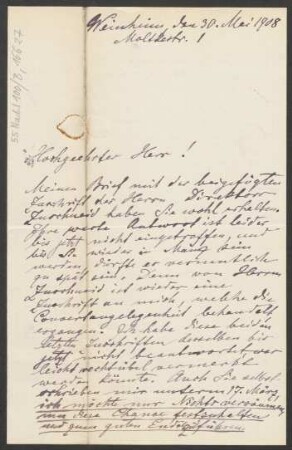 Weinheim, den 30. Mai 1908
Moltkestr. 1
55 Nachl 100/B, 166 27
Hochgeehrter Herr!
Meinen Brief mit der beigefügten
Zuschrift des Herrn Direktor
haben Sie wohl erhalten.
Ihre werte Antwort ist leider
bis jetzt nicht eingetroffen, und
bis Sie wieder in Mainz sein
werden, dürfte es vermutlich
zu spät sein. Denn von Herrn
ist wieder eine
Zuschrift an mich, welche die
Concertangelegenheit behandelt
ergangen. Ich habe diese beiden
letzten Zuschriften desselben bis
jetzt nicht beantwortet, was
leicht vermerkt
werden könnte. Auch Sie selbst
schrieben mir unterm 17. März,
ich möchte nur Nichts versäumen
um diese Chance festzuhalten
und zum guten Ende führen.